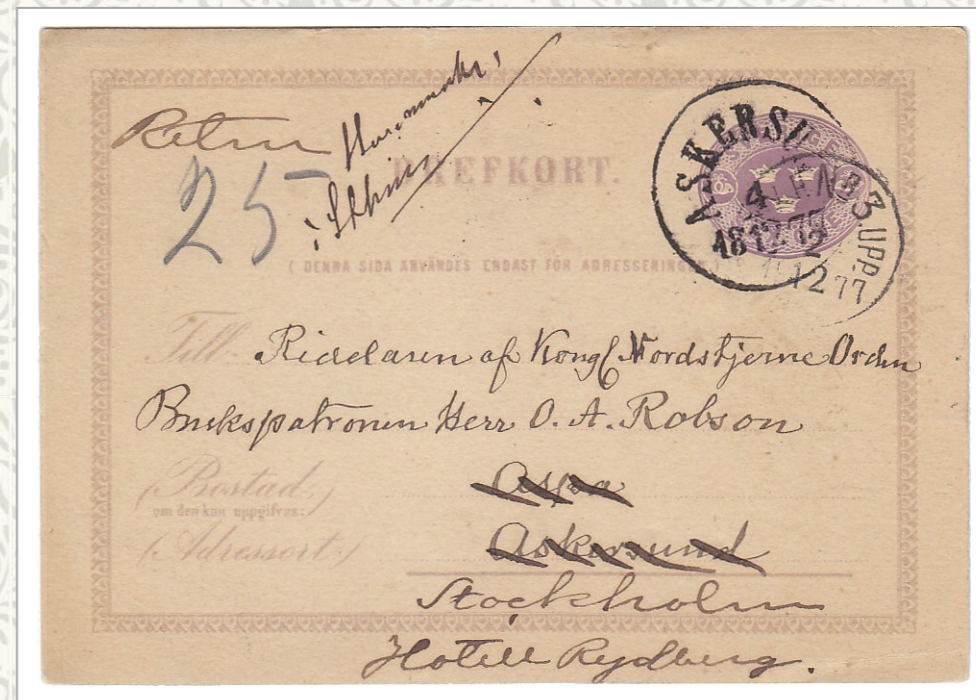 Retur
25
BREFKORT.
( DENNA SIDA ANVÄNDES ENDAST FÖR ADRESSERINGEN. )
ASKERSUND
4
12
1877
3.UPP.
12 77
Till: Riddaren af Kongl Nordstjerne Orden
Brukspatronen Herr O. A. Robson
(Bostad:)
om den kan uppgifvas:
Aspa
(Adressort:)
Askersund
Stockholm
Hotell Rydberg.